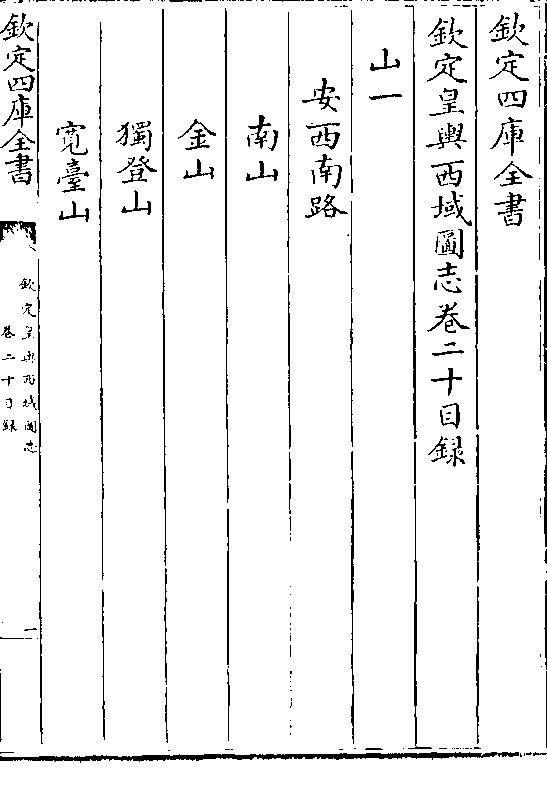 欽定四庫全書
欽定皇輿西域圖志卷二十目録
山一
安西南路
南山
金山
獨登山
寛臺山
欽定四庫全書
欽定皇輿西域圖志
卷二十目録
一